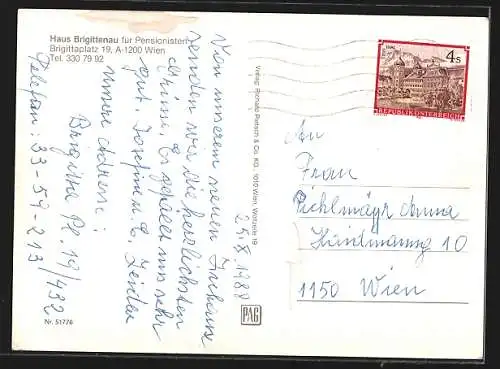 Haus Brigittenau für Pensionisten
Brigittaplatz 19, A-1200 Wien
Tel. 330 79 92
Von unserem neuen Zuhause
senden wir die herzlichsten
Grüsse. Es gefällt uns sehr
gut. Josefine u. E.
unsere Adresse:
Brigitta Pl. 19/432
Telefon: 33-59-213/
Nr. 51776
Verlag: Richard Pietsch & Co. KG., 1010 Wien, Wollzeile 19
1988
PAG
STAMS
4 S
REPUBLIK ÖSTERREICH
An
Frau
Pichlmayr Anna
10
1150 Wien